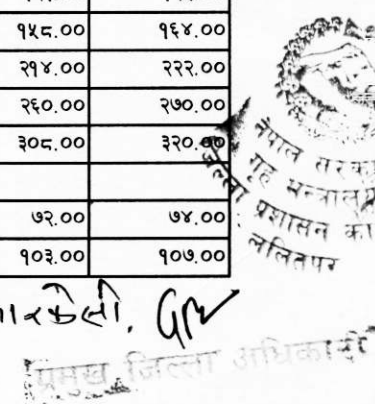 १५८.०० १६४.००
२१४.०० २२२.००
२६०.०० २७०.००
३०८.०० ३२०.००
७२.०० ७४.००
१०३.०० १०७.००
नेपाल सरकार
गृह मन्त्रालय
जिल्ला प्रशासन का
ललितपुर
प्रमुख जिल्ला अधिकारी